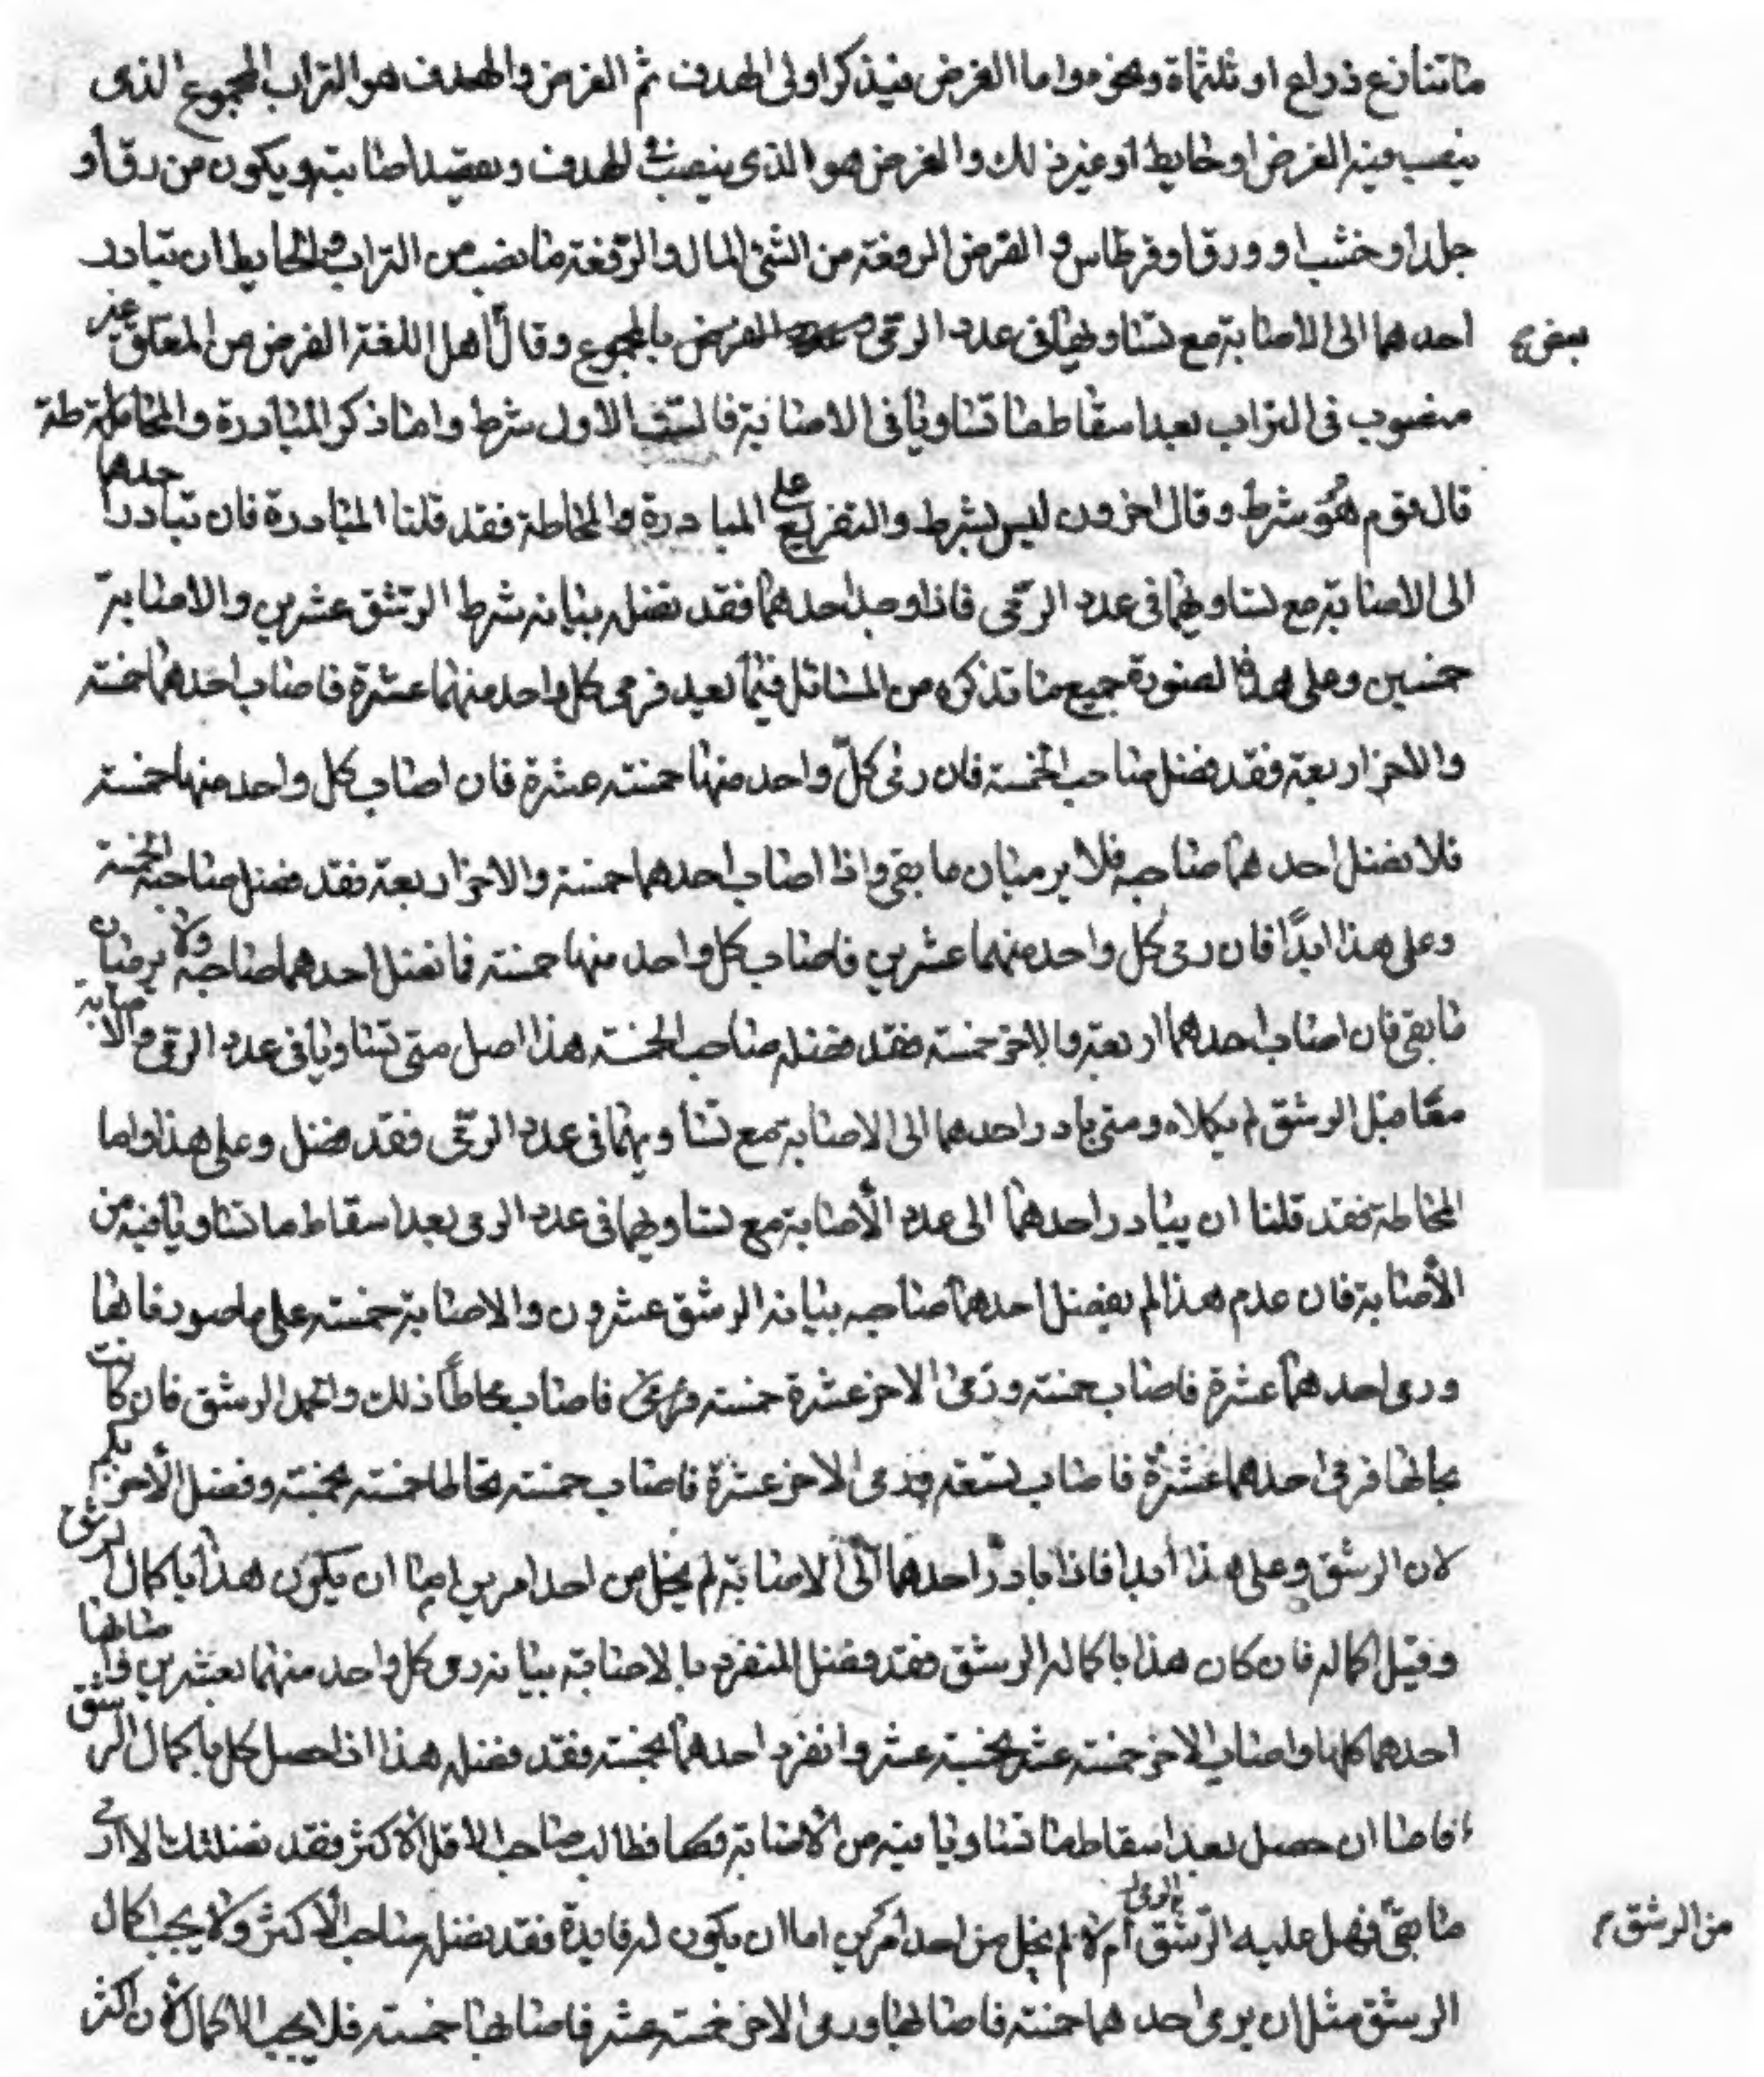 مائتا ذراع او ثلثمأة ونحو هو واما الغرض فيذكر اولى الهدف ثم الغرض والهدف هو التراب المجموع الذى
ينصب فيه الغرض او حايط او غير ذلك والغرض هو الذى ينصب فى الهدف ويقصد اصابته ويكون من رق أو
جلد او خشب او ورق او قرطاس و الغرض الرقعة من الشن البال والرقعة ما نصب من التراب والحايط ان تبادر
احدهما الى الاصابة مع تساويهما فى عدد الرمى بالمجموع وقال أهل اللغة الغرض من المعلق غير
بعض
منصوب فى التراب بعد اسقاط ما تساويا فى الاصابة فا الاول شرط واما ذكر المبادرة والمحاطة
قال قوم هو شرط وقال اخرون ليس بشرط والتفريع على المبادرة والمحاطة فقد قلنا المبادرة فان تبادر احدهما
الى الاصابة مع تساويهما فى عدد الرمى فاذا وجد احدهما فقد نضل بيانه شرط الرشق عشرين والاصابة
خمسين وعلى هذا الصورة جميع ما تذكره من المسائل فيما بعد فرمى كل واحد منهما عشرة فاصاب احدهما خمسة
والاخر اربعة فقد نضل صاحب الخمسة فان رمى كل واحد منهما خمسة عشرة فان اصاب كل واحد منهما خمسة
فلا نضل احدهما صاحبه فلا يرميان ما بقى واذا اصاب احدهما خمسة والاخر اربعة فقد نضل صاحب الخمسة
وعلى هذا ابدًا فان رمى كل واحد منهما عشرين فاصاب كل واحد منهما خمسة فما نضل احدهما صاحبه ولا يرميان
ما بقى فان اصاب احدهما اربعة والاخر خمسة فقد نضله صاحب الخمسة هذا اصل متى تساويا فى عدد الرمى والاصابة
معًا قبل الرشق لم يكملاه ومتى بادر احدهما الى الاصابة مع تساويهما فى عدد الرمى فقد نضل وعلى هذا واما
المحاطة فقد قلنا ان يبادر احدهما الى عدد الأصابة مع تساويهما فى عدد الرمى بعد اسقاط ما تساويا فيه من
الأصابة فان عدم هذا لم يفضل احدهما صاحبه بيانه الرشق عشرون والاصابة خمسة على ما صورفاها
ورمى احدهما عشرة فاصاب خمسة ورمى الاخر عشرة خمسة فاصاب يحاطا ذلك واكمل الرشق فان كانت
بحالها فرمى احدهما عشرة فاصاب تسعة ورمى الاخر عشرة فاصاب خمسة تحالها خمسة بخمسة وفضل الأخر
لان الرشق وعلى هذا أبدا فاذا بادر احدهما الى الاصابة لم يخل من احد امرين اما ان يكون هذا باكمال الرشق
وقبل اكماله فان كان هذا باكماله الرشق فقد فضل المنفرد بالاصابة بيانه رمى كل واحد منهما بعشرين فاصابها
احدهما كلها واصاب الاخر خمسة عشر بخمسة عشر وانفرد احدهما بخمسة فقد فضله هذا اذا حصل كل باكمال الرشق
فاما ان حصل بعد اسقاط ما تساويا فيه من الأصابة فطالب صاحب الاقل الاكثر فقد
ما بقى فهل عليه الرشق أم لا لم يخل من احد أمرين اما ان يكون له فايدة فقد نضله صاحب الأكثر ولا يجب اكمال
من الرشق
الرشق مثل ان يرمى احدهما خمسة فاصابها ورمى الاخر خمسة عشر فاصابها خمسة فلا يجب الاكمال لأن اكثر